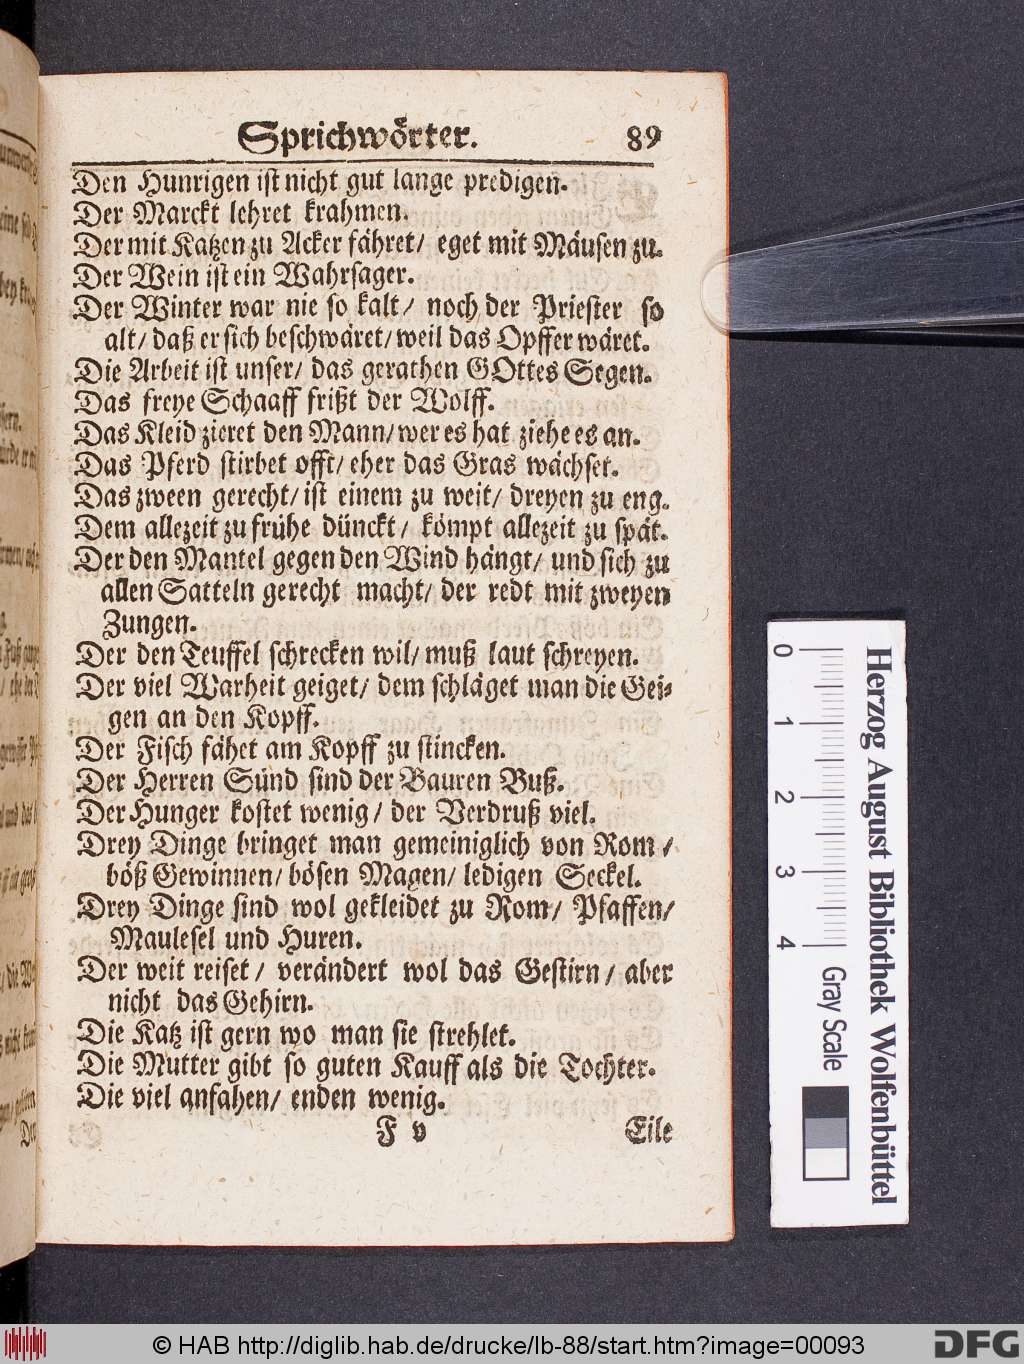 Sprichwörter. 89
Den Hunrigen ist nicht gut lange predigen.
Der Marckt lehret krahmen.
Der mit Katzen zu Acker fähret/ eget mit Mäusen zu.
Der Wein ist ein Wahrsager.
Der Winter war nie so kalt/ noch der Priester so
alt/ daß er sich beschwäret/ weil das Opffer wäret.
Die Arbeit ist unser/ das gerathen GOttes Segen.
Das freye Schaaff frißt der Wolff.
Das Kleid zieret den Mann/ wer es hat ziehe es an.
Das Pferd stirbet offt/ eher das Gras wächset.
Das zween gerecht/ ist einem zu weit/ dreyen zu eng.
Dem allezeit zu frühe dünckt/ kömpt allezeit zu spät.
Der den Mantel gegen den Wind hängt/ und sich zu
allen Satteln gerecht macht/ der redt mit zweyen
Zungen.
Der den Teuffel schrecken wil/ muß laut schreyen.
Der viel Warheit geiget/ dem schläget man die Gei-
gen an den Kopff.
Der Fisch fähet am Kopff zu stincken.
Der Herren Sünd sind der Bauren Buß.
Der Hunger kostet wenig/ der Verdruß viel.
Drey Dinge bringet man gemeiniglich von Rom/
böß Gewinnen/ bösen Magen/ ledigen Seckel.
Drey Dinge sind wol gekleidet zu Rom/ Pfaffen/
Maulesel und Huren.
Der weit reiset/ verändert wol das Gestirn/ aber
nicht das Gehirn.
Die Katz ist gern wo man sie strehlet.
Die Mutter gibt so guten Kauff als die Tochter.
Die viel anfahen/ enden wenig.
F v Eile
0 1 2 3 4 Gray Scale
Herzog August Bibliothek Wolfenbüttel
© HAB http://diglib.hab.de/drucke/lb-88/start.htm?image=00093
DFG